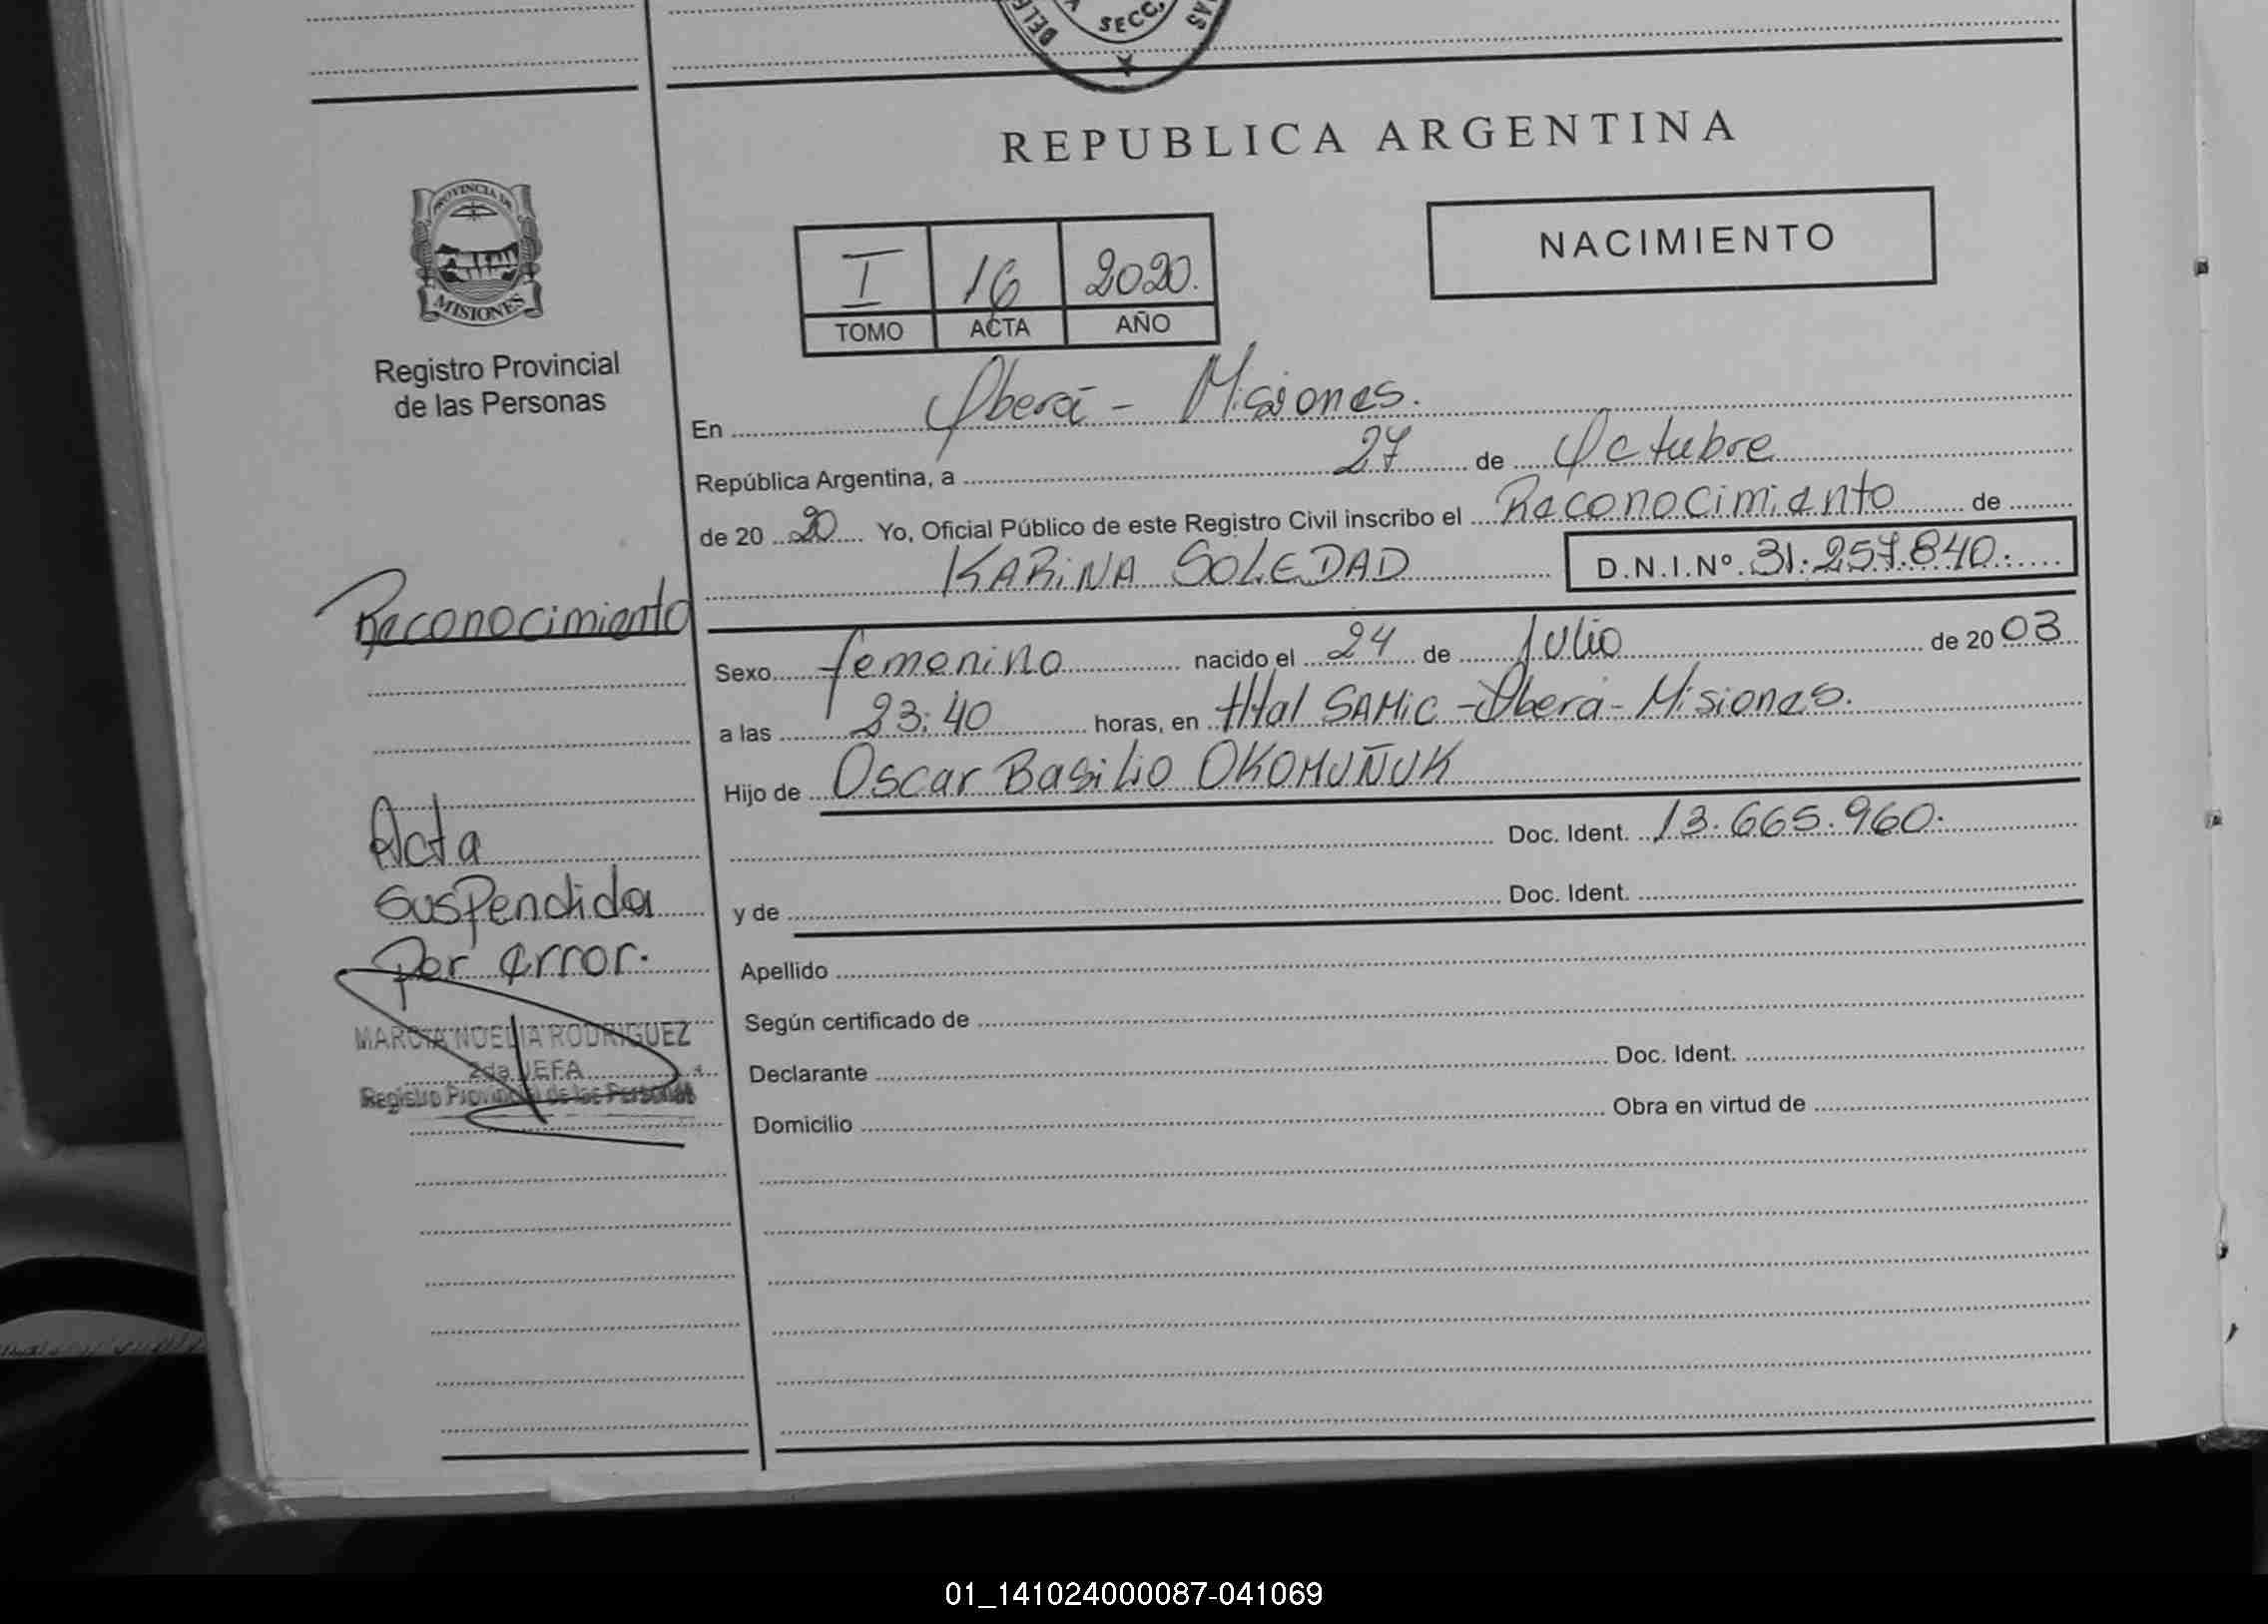 SECC.
REPUBLICA ARGENTINA
PROVINCIA DE
MISIONES
Registro Provincial
de las Personas
NACIMIENTO
I 16 2020.
TOMO ACTA AÑO
En Oberá - Misiones.
República Argentina, a 27 de Octubre
de 20 20 Yo, Oficial Público de este Registro Civil inscribo el Reconocimiento de
KARINA SOLEDAD D.N.I.Nº 31.257.840.
Reconocimiento
Sexo femenino nacido el 24 de Julio de 20 03
a las 23:40 horas, en Htal SAMIC - Oberá - Misiones.
Hijo de Oscar Basilio OKOMUÑUK
Doc. Ident. 13.665.960.
y de Doc. Ident.
Acta
suspendida
Por error.
MARCIA NOELIA RODRIGUEZ
2da JEFA
Registro Provincial de las Personas
Apellido
Según certificado de
Declarante Doc. Ident.
Domicilio Obra en virtud de
01_141024000087-041069